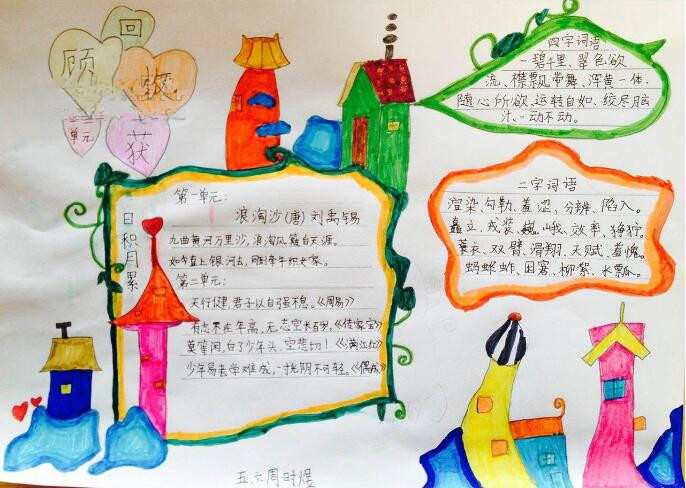 回
顾
获
单元
四字词语
一碧千里、翠色欲
流、襟飘带舞、浑黄一体、
随心所欲、运转自如、绞尽脑
汁、一动不动。
二字词语
渲染、勾勒、羞涩、分辨、陷入。
矗立、戎装、巍峨、效率、狰狞。
蓑衣、双臂、滑翔、天赋、羞愧。
蚂蚱、田窝、柳絮、水瓢。
日积月累
第一单元:
浪淘沙(唐)刘禹锡
九曲黄河万里沙,浪淘风簸自天涯。
如今直上银河去,同到牵牛织女家。
第二单元:
天行健,君子以自强不息。《周易》
有志不在年高,无志空长百岁。《传家宝》
莫等闲,白了少年头,空悲切!《满江红》
少年易老学难成,一寸光阴不可轻。《偶成》
五.六周时煜